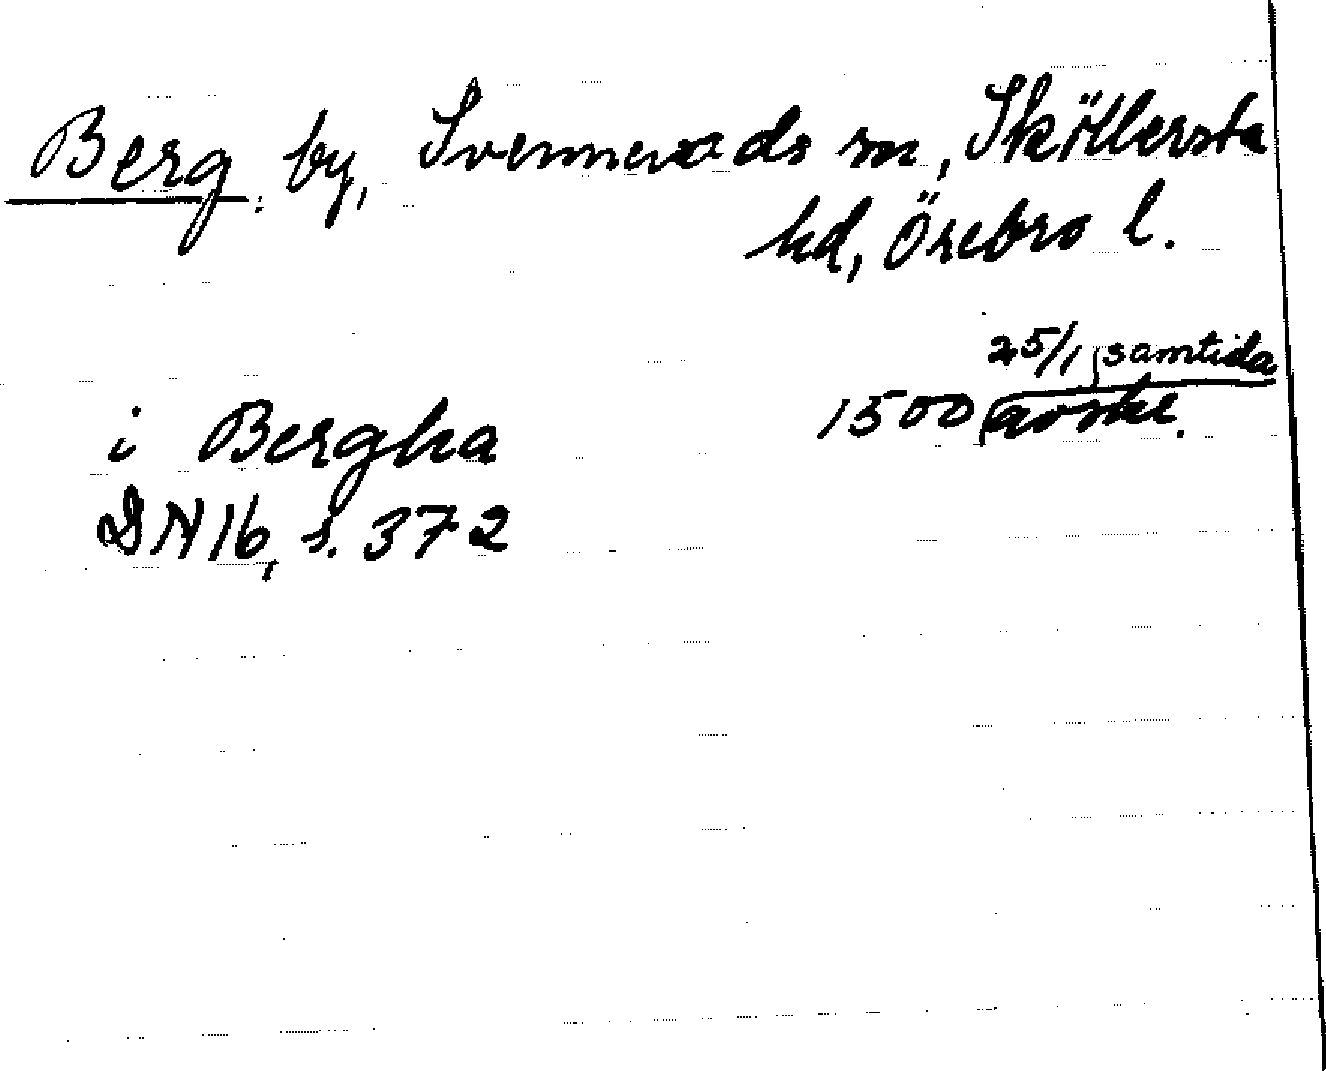 Berg by, Svennevads sn, Sköllersta
hd, Örebro l.
25/1 samtida
i Bergha 1500 avskr.
DN 16, s. 372